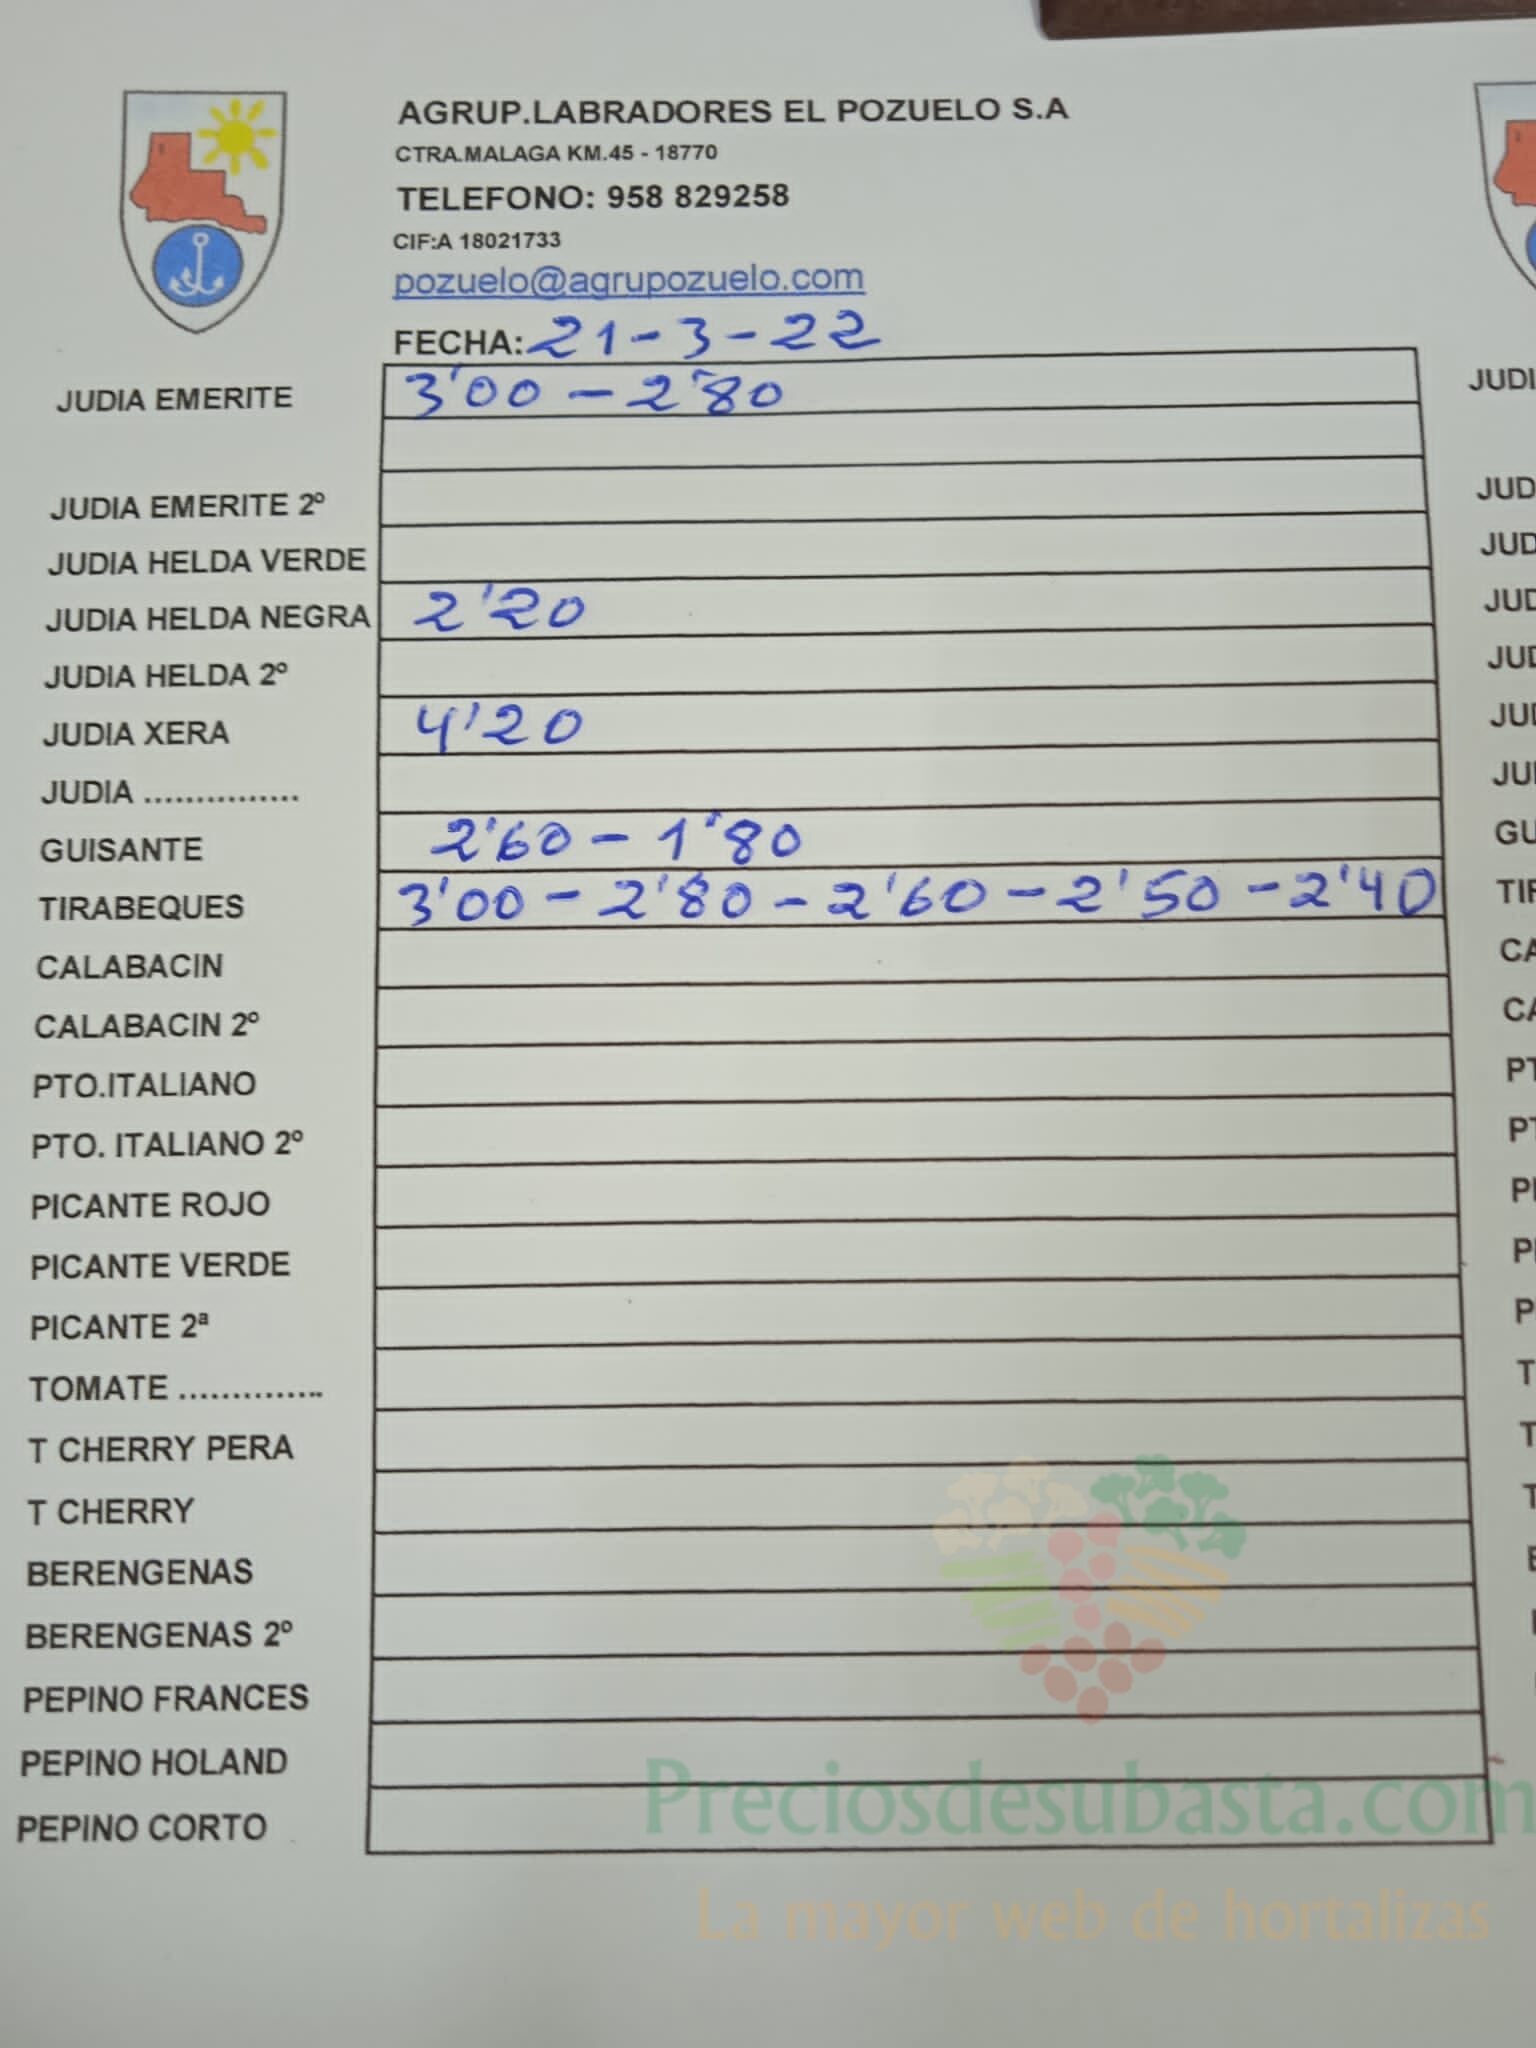 AGRUP.LABRADORES EL POZUELO S.A
CTRA.MALAGA KM.45 - 18770
TELEFONO: 958 829258
CIF:A 18021733
pozuelo@agrupozuelo.com
FECHA: 21-3-22
JUDIA EMERITE 3'00 - 2'80
JUDIA EMERITE 2º
JUDIA HELDA VERDE
JUDIA HELDA NEGRA 2'20
JUDIA HELDA 2º
JUDIA XERA 4'20
JUDIA ...............
GUISANTE 2'60 - 1'80
TIRABEQUES 3'00 - 2'80 - 2'60 - 2'50 - 2'40
CALABACIN
CALABACIN 2º
PTO.ITALIANO
PTO. ITALIANO 2º
PICANTE ROJO
PICANTE VERDE
PICANTE 2ª
TOMATE ..............
T CHERRY PERA
T CHERRY
BERENGENAS
BERENGENAS 2º
PEPINO FRANCES
PEPINO HOLAND
PEPINO CORTO
Preciosdesubasta.com
La mayor web de hortalizas